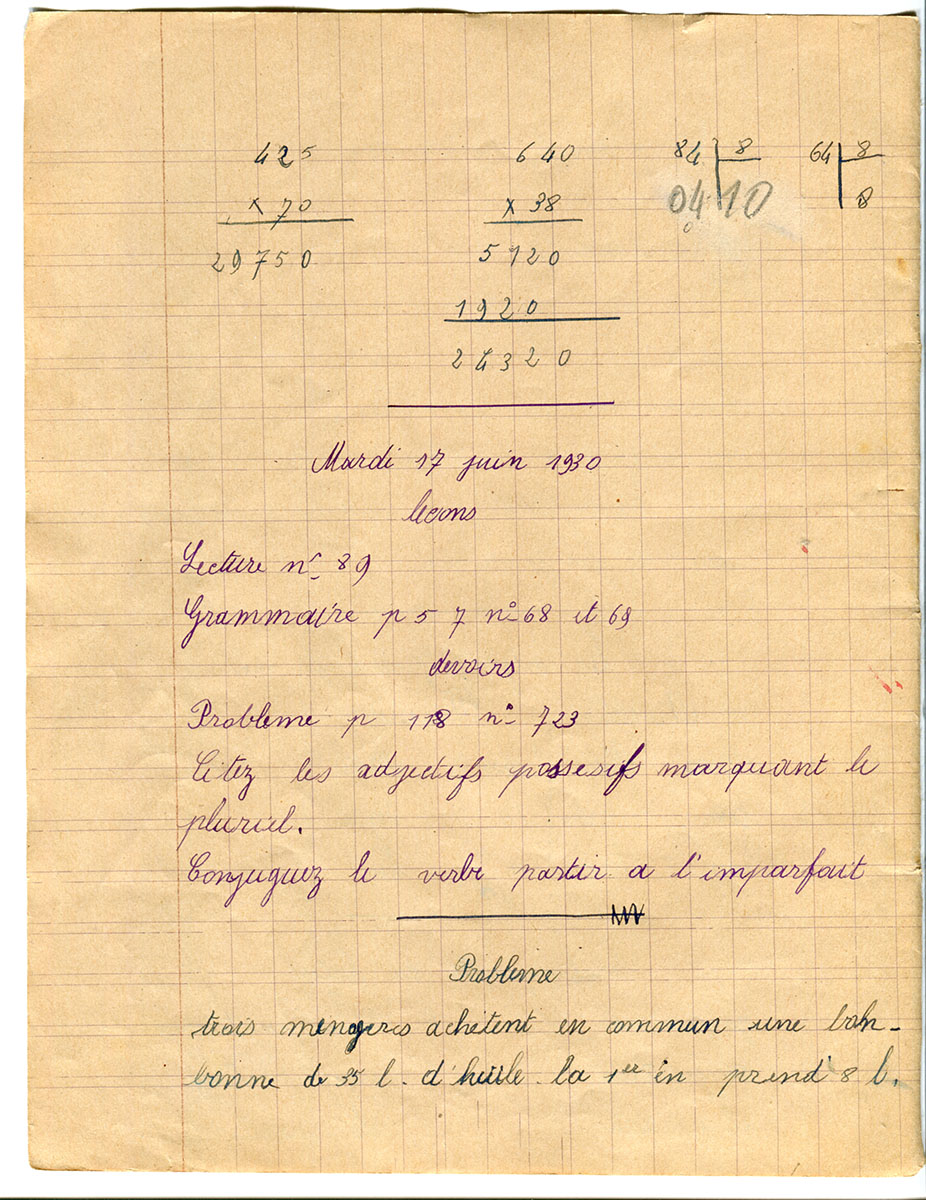 425
× 70
29750
640
× 38
5120
1920
24320
84 | 8
04 10
0
64 | 8
8
Mardi 17 juin 1930
leçons
Lecture n° 89
Grammaire p 57 n° 68 et 69
devoirs
Probleme p 118 n° 723
Citez les adjectifs possesifs marquant le
pluriel.
Conjuguez le verbe partir a l'imparfait
Probleme
trois achètent en commun une bon-
bonne de 35 l. d'huile la 1er en prend 8 l.